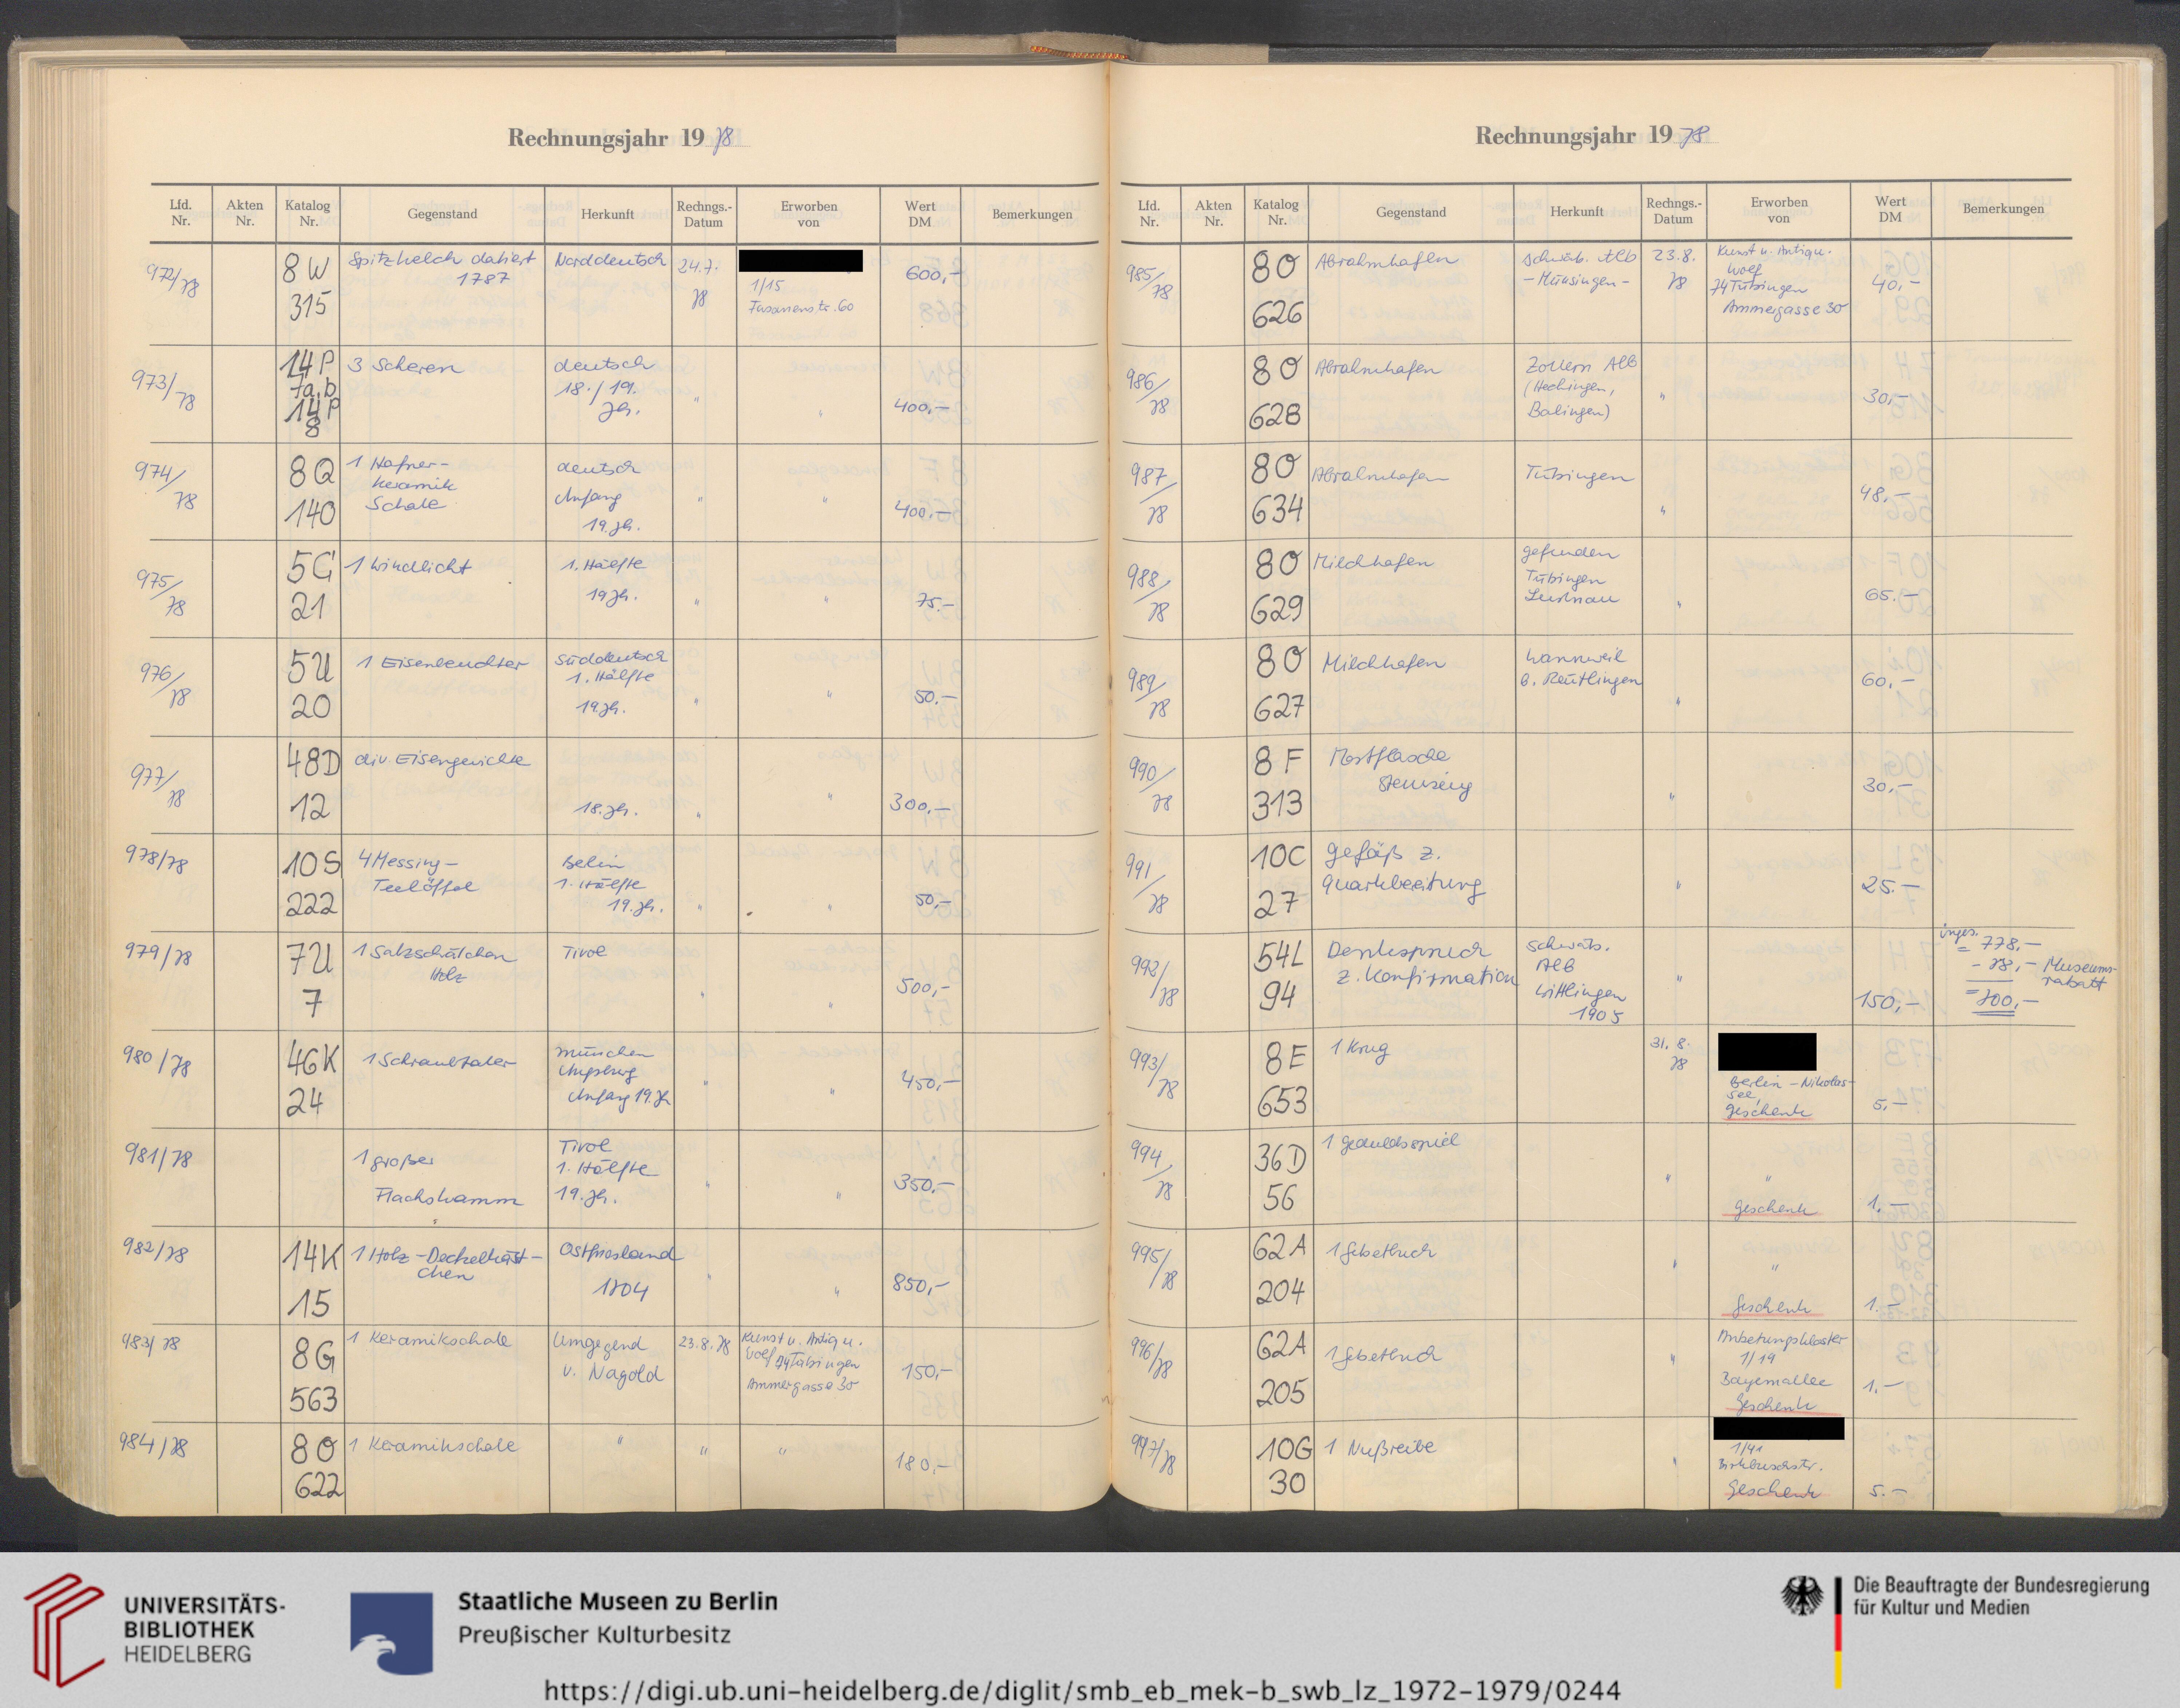 Rechnungsjahr 19 78
Lfd. Nr.
Akten Nr.
Katalog Nr.
Gegenstand
Herkunft
Rechngs.- Datum
Erworben von
Wert DM
Bemerkungen
972/78 8W 315 Spitzkelch datiert 1787 Norddeutsch 24.7. 78 1/15 Fasanenstr. 60 600,-
973/78 14P 7a,b 14P 8 3 Scheren deutsch 18./19. Jh. " " 400,-
974/78 8Q 140 1 Hafner- keramik Schale deutsch Anfang 19. Jh. " " 400,-
975/78 5G 21 1 Windlicht 1. Hälfte 19 Jh. " " 75.-
976/78 5U 20 1 Eisenleuchter Süddeutsch 1. Hälfte 19 Jh. " " 50.-
977/78 48D 12 div. Eisengewichte 18. Jh. " " 300,-
978/78 10S 222 4 Messing- Teelöffel Berlin 1. Hälfte 19. Jh. " " 50,-
979/78 7U 7 1 Salzschälchen Holz Tirol " " 500,-
980/78 46K 24 1 Schraubtaler München Augsburg Anfang 19. Jh " " 450,-
981/78 1 großer Flachskamm Tirol 1. Hälfte 19. Jh. " " 350,-
982/78 14K 15 1 Holz-Deckelkäst- chen Ostfriesland 1804 " " 850,-
983/78 8G 563 1 Keramikschale Umgegend v. Nagold 23.8.78 Kunst u. Antiqu. Wolf 74 Tübingen Ammergasse 30 150,-
984/78 8O 622 1 Keramikschale " " " 180,-
Rechnungsjahr 19 78
Lfd. Nr.
Akten Nr.
Katalog Nr.
Gegenstand
Herkunft
Rechngs.- Datum
Erworben von
Wert DM
Bemerkungen
985/78 8O 626 Abrahmhafen Schwäb. Alb - Münsingen - 23.8. 78 Kunst u. Antiqu. Wolf 74 Tübingen Ammergasse 30 40,-
986/78 8O 628 Abrahmhafen Zollern Alb (Hechingen, Balingen) " 30,-
987/78 8O 634 Abrahmhafen Tübingen " 48,-
988/78 8O 629 Milchhafen gefunden Tübingen Lustnau " 65.-
989/78 8O 627 Milchhafen Wannweil b. Reutlingen " 60,-
990/78 8F 313 Mostflasche Steinzeug " 30,-
991/78 10C 27 Gefäß z. Quarkbereitung " 25.-
992/78 54L 94 Denkspruch z. Konfirmation Schwäb. Alb Wittlingen 1905 " 150,- insges. = 778,- - 78,- Museums- rabatt = 700,-
993/78 8E 653 1 Krug 31. 8. 78 Berlin-Nikolas- see, Geschenk 5,-
994/78 36D 56 1 Geduldsspiel " " Geschenk 1.-
995/78 62A 204 1 Gebetbuch " " Geschenk 1.-
996/78 62A 205 1 Gebetbuch " Anbetungskloster 1/19 Bayernallee Geschenk 1.-
997/78 10G 30 1 Nußreibe " 1/41 Birkbuschstr. Geschenk 5.-
UNIVERSITÄTS-
BIBLIOTHEK
HEIDELBERG
Staatliche Museen zu Berlin
Preußischer Kulturbesitz
Die Beauftragte der Bundesregierung
für Kultur und Medien
https://digi.ub.uni-heidelberg.de/diglit/smb_eb_mek-b_swb_lz_1972-1979/0244